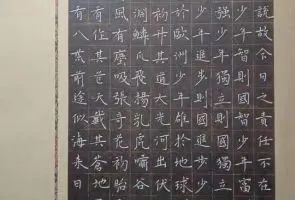 說故今日之責任不在
少年智則國智少年富
強少年獨立則國獨立
少年進步則國進步少
於歐洲少年雄於地球
淵鱗爪飛揚乳虎嘯谷
風塵吸張奇花初胎
有作其芒天戴其蒼地
有八荒前途似海來日